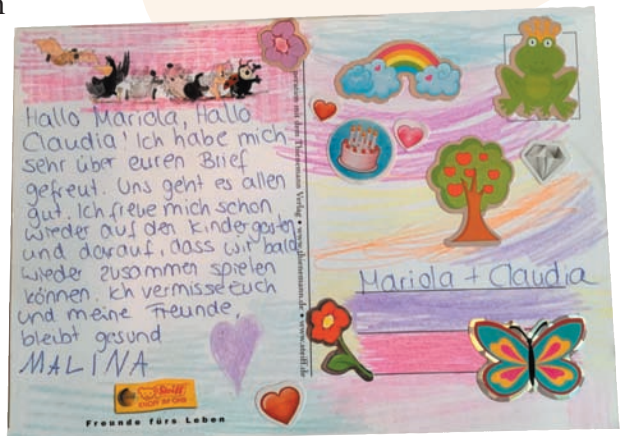 Hallo Mariola, Hallo
Claudia! Ich habe mich
sehr über euren Brief
gefreut. Uns geht es allen
gut. Ich freue mich schon
wieder auf den Kindergarten
und darauf, dass wir bald
wieder zusammen spielen
können. Ich vermisse euch
und meine Freunde,
bleibt gesund
MALINA
Steiff
KNOPF IM OHR
Freunde fürs Leben
mit dem Thienemann Verlag • www.thienemann.de • www.steiff.de
Mariola + Claudia